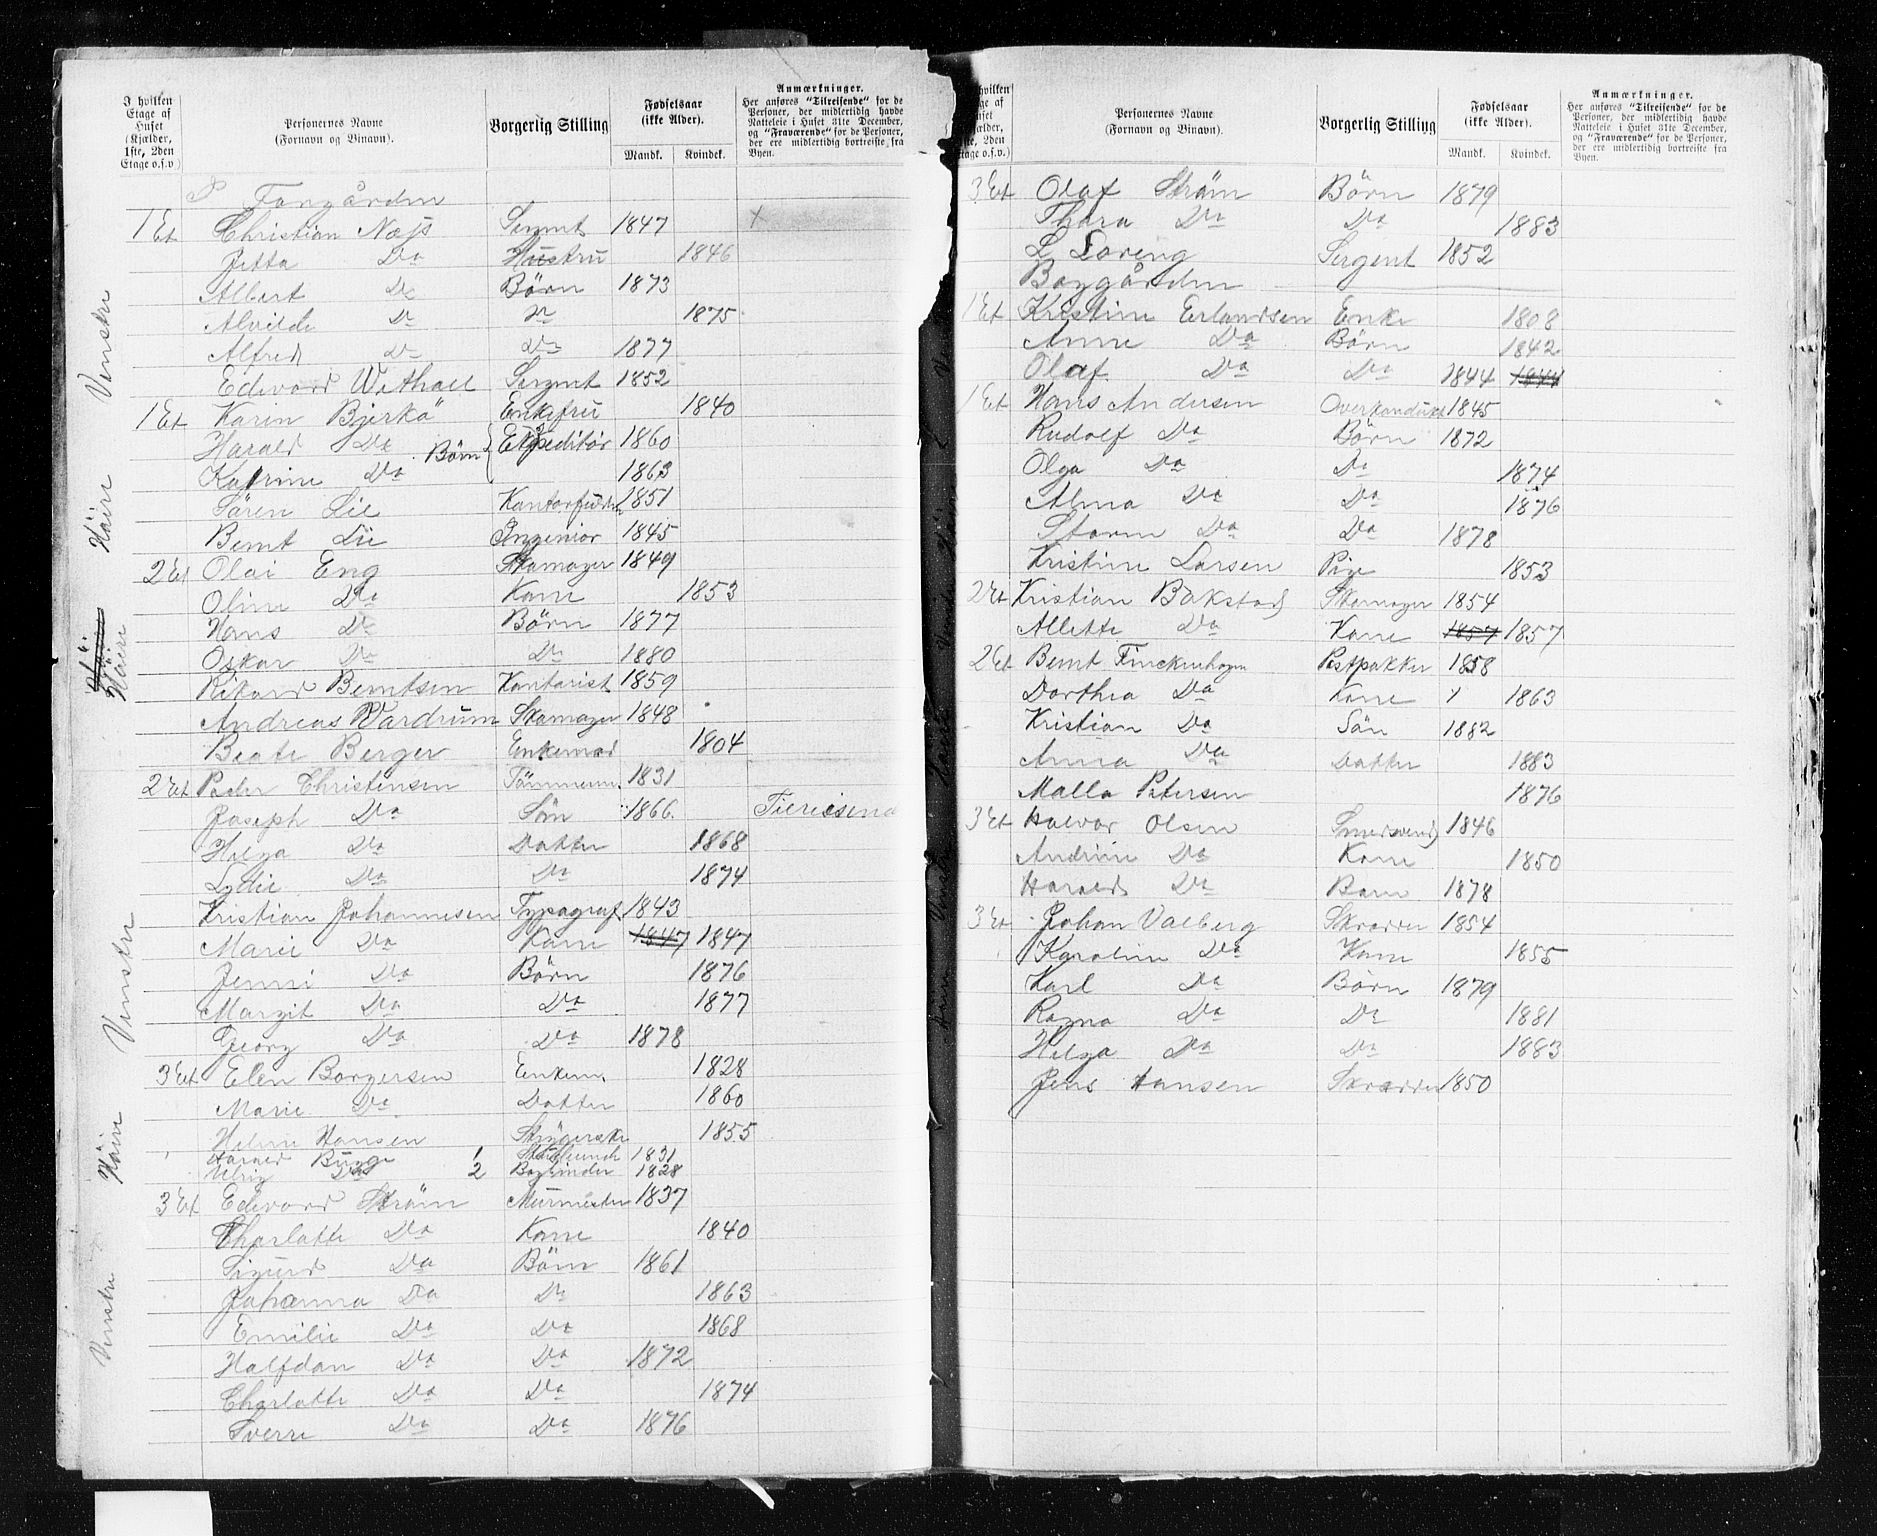 I hvilken Etage af Huset (Kjælder, 1ste, 2den Etage o.s.v.)
Personernes Navne (Fornavn og Binavn).
Borgerlig Stilling
Fødselsaar (ikke Alder).
Mandk. Kvindek.
Anmærkninger.
Her anføres "Tilreisende" for de Personer, der midlertidig havde Natteleie i Huset 31te December, og "Fraværende" for de Personer, der ere midlertidig bortreiste fra Byen.
Forgården
1 Et Christian Næss Sergnt 1847 x
Jetta Do Hustru 1846
Albert Do Börn 1873
Alvilde Do Do 1875
Alfred Do Do 1877
Edvard Wethall Sergnt 1852
1 Et Karen Bjerkö Enkefru 1840
Harald Do Börn Expeditör 1860
Katrine Do 1863
Sören Lie 1851
Bernt Lie Ingeniör 1845
2 Et Olai Eng Skomager 1849
Oline Do Kone 1853
Hans Do Börn 1877
Oskar Do Do 1880
Rikard Berntsen Kontorist 1859
Andreas Wardrum Skomager 1848
Beate Berger 1804
2 Et Peder Christensen Tömmerm. 1831
Joseph Do Sön 1866 Tilreisend
Helga Do Datter 1868
Lydie Do Do 1874
Kristian Johannesen Typograf 1843
Marie Do Kone 1847 1847
Jenni Do Börn 1876
Margit Do Do 1877
Georg Do Do 1878
3 Et Elen Borgersen Enkem. 1828
Marie Do Datter 1860
Helene Hansen Strygerske 1855
Harald Bunge 1 1831
Ulrig Do 2 Bogbinder 1828
3 Et Edvard Ström Murmester 1837
Charlotte Do Kone 1840
Sigurd Do Börn 1861
Johanna Do Do 1863
Emilie Do Do 1868
Halfdan Do Do 1872
Charlotte Do Do 1874
Sverre Do Do 1876
Venstre
Höire
Höire
Venstre
Höire
Venstre
I hvilken Etage af Huset (Kjælder, 1ste, 2den Etage o.s.v.)
Personernes Navne (Fornavn og Binavn).
Borgerlig Stilling
Fødselsaar (ikke Alder).
Mandk. Kvindek.
Anmærkninger.
Her anføres "Tilreisende" for de Personer, der midlertidig havde Natteleie i Huset 31te December, og "Fraværende" for de Personer, der ere midlertidig bortreiste fra Byen.
3 Et Olaf Ström Börn 1879
Thora Do Do 1883
L Loreng Sergent 1852
Baggården
1 Et Kristine Erlandsen Enke 1808
Anne Do Börn 1842
Olaf Do Do 1844 1844
1 Et Hans Andersen Overkonduktr 1845
Rudolf Do Börn 1872
Olga Do Do 1874
Alma Do Do 1876
Storm Do Do 1878
Kristine Larsen Pige 1853
2 Et Kristian Bakstad Skomager 1854
Allette Do Kone 1857 1857
2 Et Bernt Finckenhagen Postpakker 1858
Dorthea Do Kone 1 1863
Kristian Do Sön 1882
Anna Do Datter 1883
Malla Petersen 1876
3 Et Halvor Olsen Smedsvend 1846
Andrine Do Kone 1850
Harald Do Barn 1878
3 Et Johan Valberg Skrædder 1854
Karoline Do Kone 1855
Karl Do Börn 1879
Ragna Do Do 1881
Helga Do Do 1883
Jens Hansen Skrædder 1850